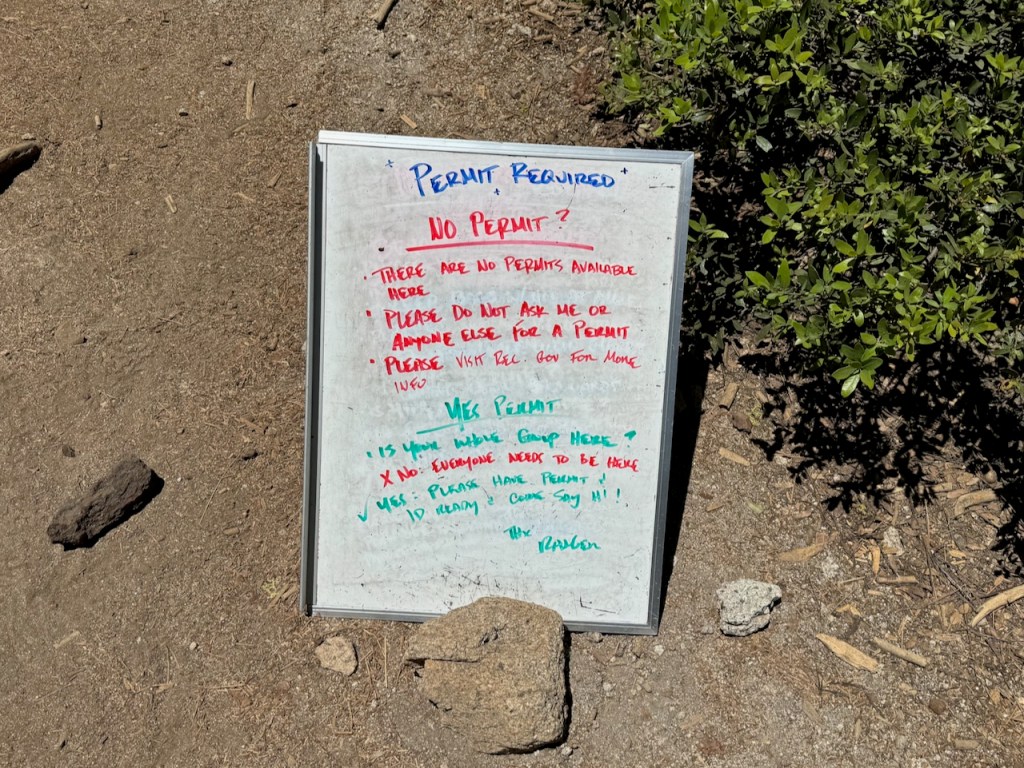 PERMIT REQUIRED
NO PERMIT?
• THERE ARE NO PERMITS AVAILABLE
HERE
• PLEASE DO NOT ASK ME OR
ANYONE ELSE FOR A PERMIT
• PLEASE VISIT REC. GOV FOR MORE
INFO
YES PERMIT
• IS YOUR WHOLE GROUP HERE?
X NO: EVERYONE NEEDS TO BE HERE
✓ YES: PLEASE HAVE PERMIT &
ID READY & COME SAY HI!
THX
RANGER